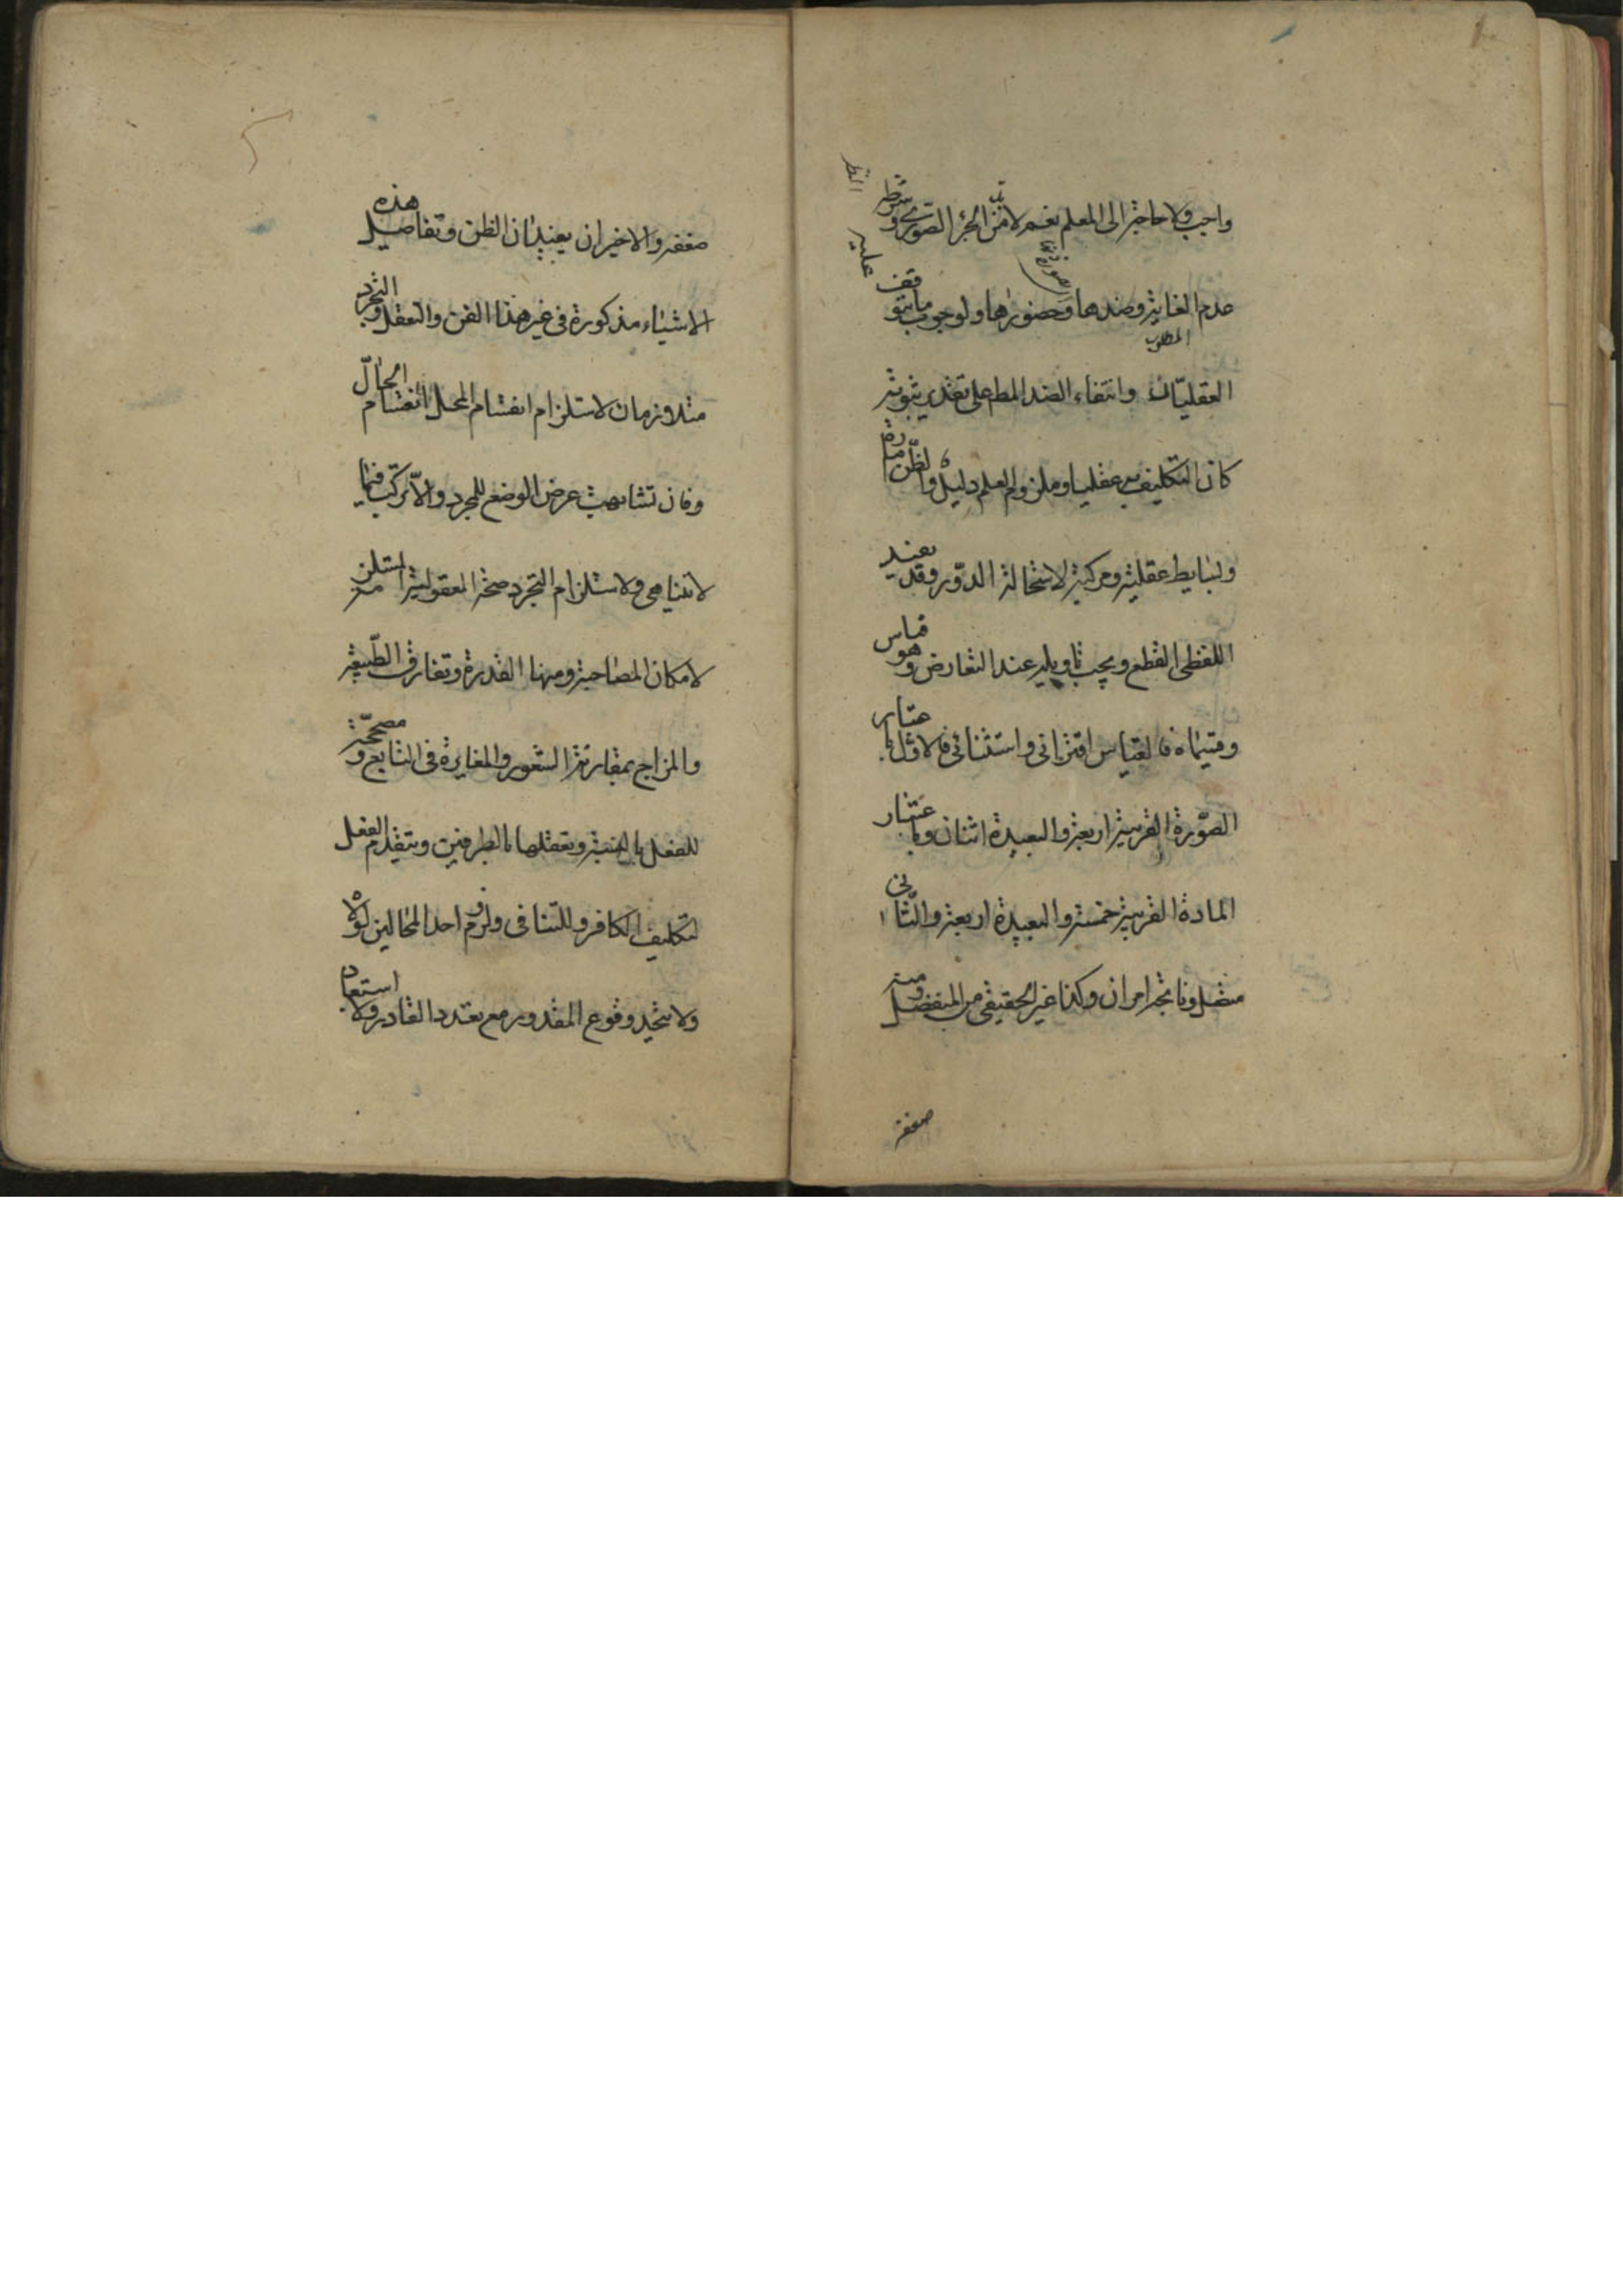 واجب ولا حاجة الى المعلم نعم لا بد من الجزء الصوري وشرطه
عدم الغاية وضدها وحضورها ولوجوب ما يتوقف
عليه
النظر
المطلوب
العقليّان وانتفاء الضد المط على تقدير ثبوته
كان التكليف به عقليا وملزوم العلم دليل والظن امارة
وبسايطه عقلية ومركبة لاستحالة الدّور وقد يفيد
اللفظى القطع ويجب تاويله عند التعارض وهو قياس
وقسيماه فالقياس اقترانى واستثنائى فالاول باعتبار
الصّورة القريبة اربعة والبعيدة اثنان وباعتبار
المادة القريبة خمسة والبعيدة اربعة والثّانى
متصل وناتجه امران وكذا غير الحقيقى من المنفصل ومنه
ضعفه
ضعفه والاخيران يفيدان الظن وتفاصيل هذه
الاشياء مذكورة فى غير هذا الفن والتعقل والتجرد
متلازمان لاستلزام انقسام المحل انقسام الحالّ
وفان تشابهت عرض الوضع للمجرد والاّ تركّب فيما
لا يتناهى ولاستلزام التجرد صحة المعقولية المستلزمة
لامكان المصاحبة ومنها القدرة وتفارق الطّبيعة
والمزاج بمقارنة الشعور والمغايرة فى التابع ومصحّحة
للفعل بالنسبة وتعلقها بالطرفين وتتقدم الفعل
لتكليف الكافر وللتنافى ولزوم احد المحالين لولاه
ولا يتحد وقوع المقدور مع تعدد القادر ولا استبعاد